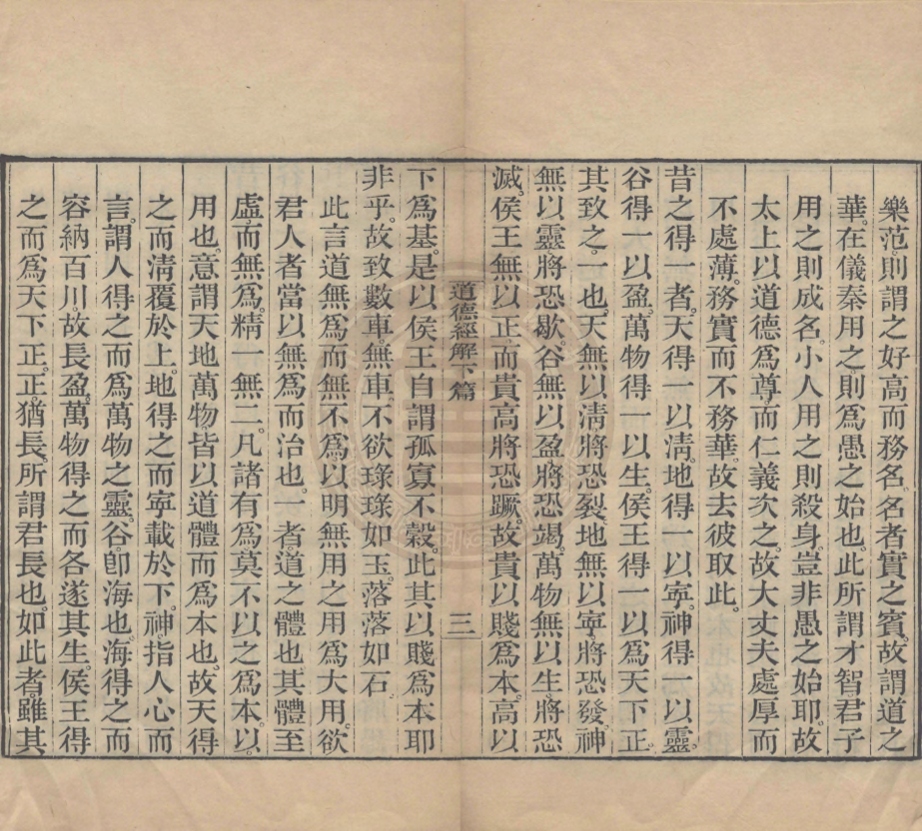 樂范。則謂之好高而務名。名者實之賓。故謂道之
華。在儀秦用之。則爲愚之始也。此所謂才智君子
用之則成名。小人用之則殺身。豈非愚之始耶。故
太上以道德爲尊。而仁義次之。故大丈夫處厚而
不處薄。務實而不務華。故去彼取此。
昔之得一者。天得一以淸。地得一以寧。神得一以靈。
谷得一以盈。萬物得一以生。侯王得一以爲天下正。
其致之。一也。天無以淸將恐裂。地無以寧將恐發。神
無以靈將恐歇。谷無以盈將恐竭。萬物無以生。將恐
滅。侯王無以正。而貴高將恐蹶。故貴以賤爲本。高以
道德經解下篇
三
下爲基。是以侯王自謂孤寡不穀。此其以賤爲本耶
非乎。故致數車。無車。不欲琭琭如玉。落落如石。
此言道無爲而無不爲。以明無用之用爲大用。欲
君人者當以無爲而治也。一者。道之體也。其體至
虛而無爲。精一無二。凡諸有爲。莫不以之爲本。以
用也。意謂天地萬物。皆以道體而爲本也。故天得
之而淸覆於上。地得之而寧載於下。神。指人心而
言。謂人得之而爲萬物之靈。谷。卽海也。海得之而
容納百川。故長盈。萬物得之而各遂其生。侯王得
之而爲天下正。正。猶長。所謂君長也。如此者。雖其